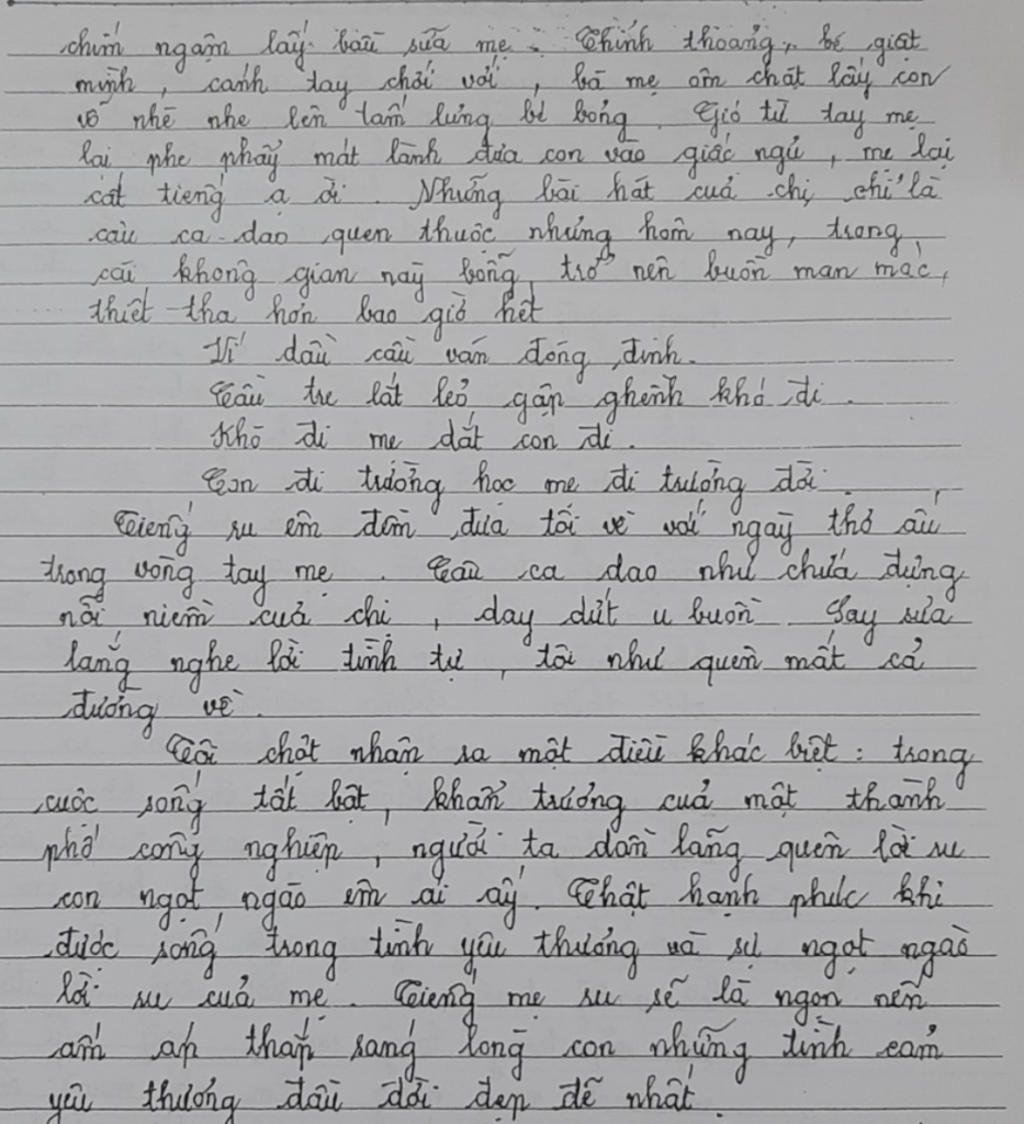 chím ngậm lấy bầu sữa mẹ. Thỉnh thoảng, bé giật
mình, cánh tay chới với, bà mẹ ôm chặt lấy con
vỗ nhè nhẹ lên tấm lưng bé bỏng. Gió từ tay mẹ
lại phe phẩy mát lành đưa con vào giấc ngủ, mẹ lại
cất tiếng ạ ời. Những bài hát của chị, chỉ là
câu ca dao quen thuộc nhưng hôm nay, trong
cái không gian này bỗng trở nên buồn man mác,
thiết tha hơn bao giờ hết
Ví dầu cầu ván đóng đinh.
Cầu tre lắt lẻo gập ghềnh khó đi.
Khó đi mẹ dắt con đi.
Con đi trường học mẹ đi trường đời.
Tiếng ru êm đềm đưa tôi về với ngày thơ ấu
trong vòng tay mẹ. Câu ca dao như chứa đựng
nỗi niềm của chị, day dứt u buồn. Say sưa
lắng nghe lời tình tự, tôi như quên mất cả
đường về.
Tôi chợt nhận ra một điều khác biệt: trong
cuộc sống tất bật, khẩn trương của một thành
phố công nghiệp, người ta dần lãng quên lời ru
con ngọt ngào êm ái ấy. Thật hạnh phúc khi
được sống trong tình yêu thương và sự ngọt ngào
lời ru của mẹ. Tiếng mẹ ru sẽ là ngọn nến
ấm áp thắp sáng lòng con những tình cảm
yêu thương đầu đời đẹp đẽ nhất.